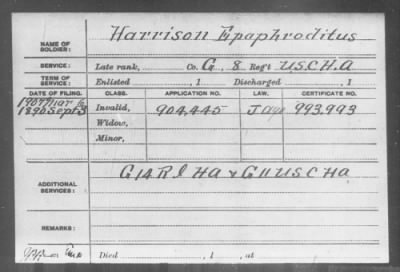 NAME OF SOLDIER: Harrison Epaphroditus
SERVICE: Late rank, Co. G, 8 Reg't U.S.C.H.A
TERM OF SERVICE: Enlisted , 1 Discharged , 1
DATE OF FILING. CLASS. APPLICATION NO. LAW. CERTIFICATE NO.
1907 Mar 6
1890 Sept 3 Invalid, 904,445 J 993,993
Widow,
Minor,
ADDITIONAL SERVICES: G 14 R I HA & G 11 US C HA
REMARKS:
Died , 1 , at